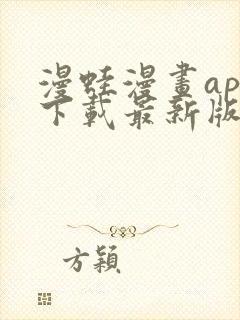 漫蛙漫畫ap
下載最新版
方穎